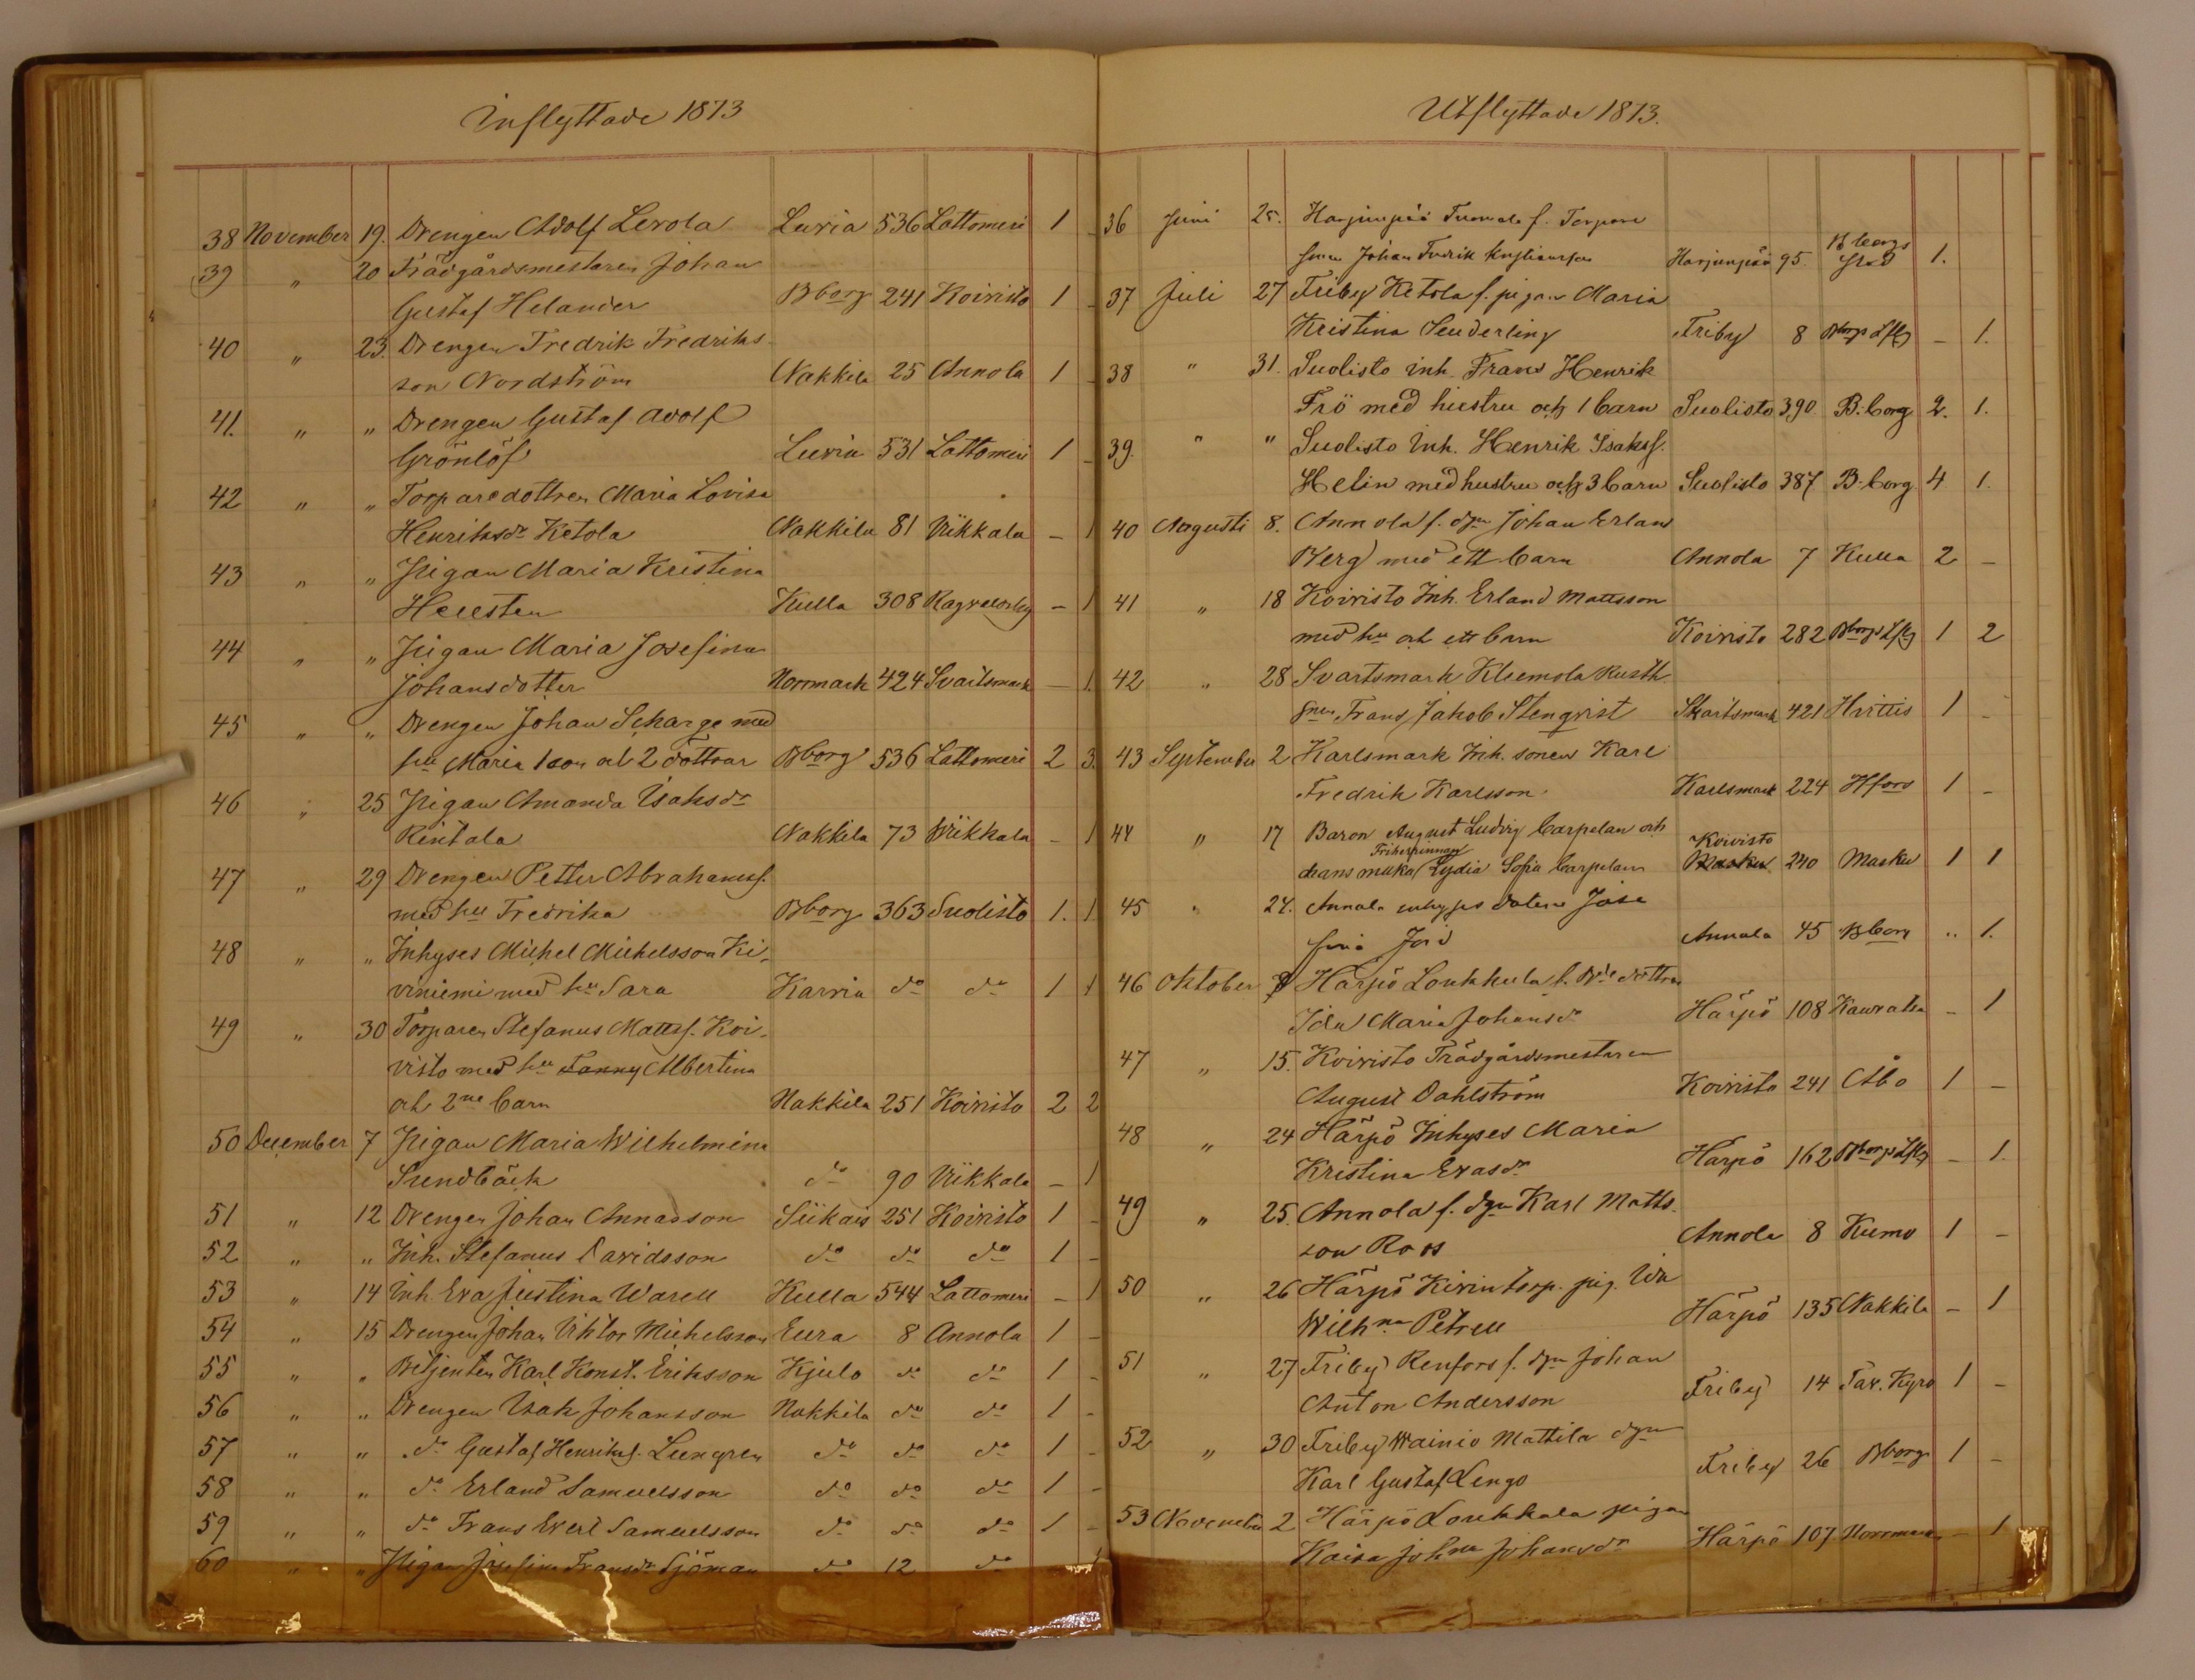 Inflyttade 1873
38 November 19. Drengen Adolf Lerola Luvia 536 Lattomeri 1 -
39 " 20 Trädgårdsmestaren Johan
Gustaf Helander Bborg 241 Koivisto 1 -
40 " 23. Drengen Fredrik Fredriks
son Nordström Nakkila 25 Annola 1 -
41. " " Drengen Gustaf Adolf
Grönlöf Luvia 531 Lattomeri 1 -
42 " " Torparedottren Maria Lovisa
Henriksdr Ketola Nakkila 81 Viikkala - 1
43 " " Pigan Maria Kristina
Hellsten Kulla 308 Ragvaldsby - 1
44 " " Pigan Maria Josefina
Johansdotter Norrmark 424 Svartsmark - 1.
45 " " Drengen Johan Scharge med
hu Maria 1 son och 2 döttrar Bborg 536 Lattomeri 2 3.
46 " 25 Pigan Amanda Isaksdr
Rintala Nakkila 73 Wiikkala - 1
47 " 29 Drengen Petter Abrahamsf.
med hu Fredrika Bborg 363 Suolisto 1. 1
48 " " Inhyses Michel Michelsson Ki-
viniemi med hu Sara Karvia do do 1 1
49 " 30 Torparen Stefanus Mattsf. Koi-
visto med hu Fanny Albertina
och 2ne barn Nakkila 251 Koivisto 2 2
50 December 7 Pigan Maria Wilhelmina
Sundbäck do 90 Viikkala - 1
51 " 12 Drengen Johan Annasson Siikais 251 Koivisto 1 -
52 " " Inh. Stefanus Davidsson do do do 1 -
53 " 14 Inh. Eva Justina Warell Kulla 544 Lattomeri - 1
54 " 15 Drengen Johan Viktor Michelsson Eura 8 Annola 1 -
55 " " Betjenten Karl Konst. Eriksson Kjulo do do 1 -
56 " " Drengen Isak Johansson Nakkila do do 1 -
57 " " do Gustaf Henriksf. Lungren do do do 1 -
58 " " do Erland Samuelsson do do do 1 -
59 " " do Frans Evert Samuelsson do do do 1 -
60 " " Pigan Josefina Fransdr Sjöman do 12 do
Utflyttade 1873.
36 Juni 25. Harjunpää Tuomola f. Torpare
sonen Johan Fredrik Kristiansson Harjunpää 95. Bborgs stad 1.
37 Juli 27 Friby Ketola f. pigan Maria
Kristina Senderling Friby 8 Bborgs Lfg - 1.
38 " 31. Suolisto inh. Frans Henrik
Frö med hustru och 1 barn Suolisto 390 B:borg 2. 1.
39. " " Suolisto Inh. Henrik Isaksf.
Helin med hustru och 3 barn Suolisto 387 B:borg 4 1.
40 Augusti 8. Annola f. dgn Johan Erland
Berg med ett barn Annola 7 Kulla 2 -
41 " 18 Koivisto Inh. Erland Mattsson
med hu och ett barn Koivisto 282 Bborgs Lfg 1 2
42 " 28 Svartsmark Klemola Rusth.
snen Frans Jakob Stenqvist Svartsmark 421 Hvittis 1 -
43 September 2 Karlsmark Inh. sonen Karl
Fredrik Karlsson Karlsmark 224 Hfors 1 -
44 " 17 Baron August Ludvig Carpelan och
Friherrinnan Koivisto
dess maka Lydia Sofia Carpelan Masku 240 Masku 1 1
45 " 24. Annala inhyses dotern Jose
fina Annala 45 Bborg " 1.
46 Oktober 8 Harpö Loukkula f. Bde dottren
Ida Maria Johansdr Härpö 108 Kauvatsa - 1
47 " 15. Koivisto Trädgårdsmestaren
August Dahlström Koivisto 241 Åbo 1 -
48 " 24 Härpö Inhyses Maria
Kristina Evasdr Härpö 162 Bborgs Lfg - 1.
49 " 25. Annola f. dgn Karl Matts
son Roos Annola 8 Kumo 1 -
50 " 26 Härpö Kivin torp. pig. Ida
Wilhna Petrell Härpö 135 Nakkila - 1
51 " 27 Friby Renfors f. dgn Johan
Anton Andersson Friby 14 Tav. Kyro 1 -
52 " 30 Friby Wainio Mattila dgn
Karl Gustaf Lengo Friby 26 Bborg 1 -
53 November 2 Härpö Loukkala pigan
Kaisa Johna Johansdr Härpö 107 Norrmark - 1